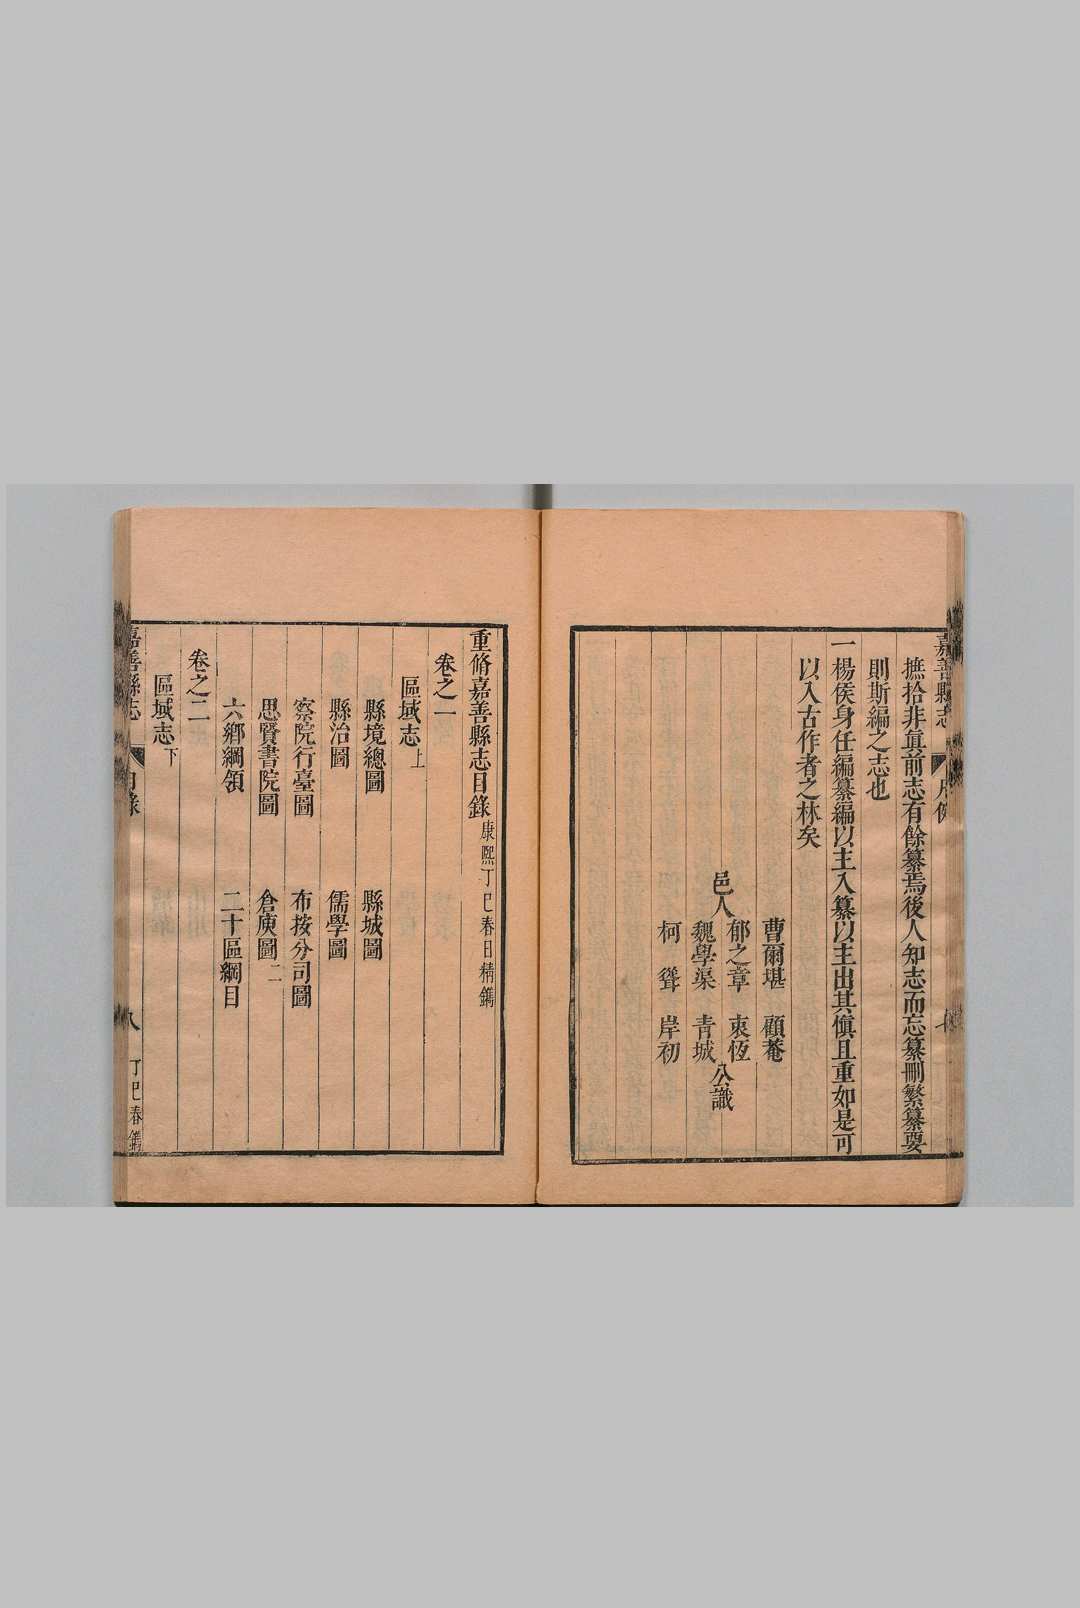 嘉善縣志
摭拾非眞前志有餘纂焉後人知志而忘纂刪繁纂要
則斯編之志也
一楊侯身任編纂編以主入纂以主出其愼且重如是可
以入古作者之林矣
邑人
曹爾堪 顧菴
郁之章 朿恆
魏學渠 青城
柯聳 岸初
公識
重脩嘉善縣志目錄 康熙丁巳春日精鐫
卷之一
區域志上
縣境總圖 縣城圖
縣治圖 儒學圖
察院行臺圖 布按分司圖
思賢書院圖 倉庾圖二
六鄉綱領 二十區綱目
卷之二
區域志下
嘉善縣志 目錄 八 丁巳春鐫